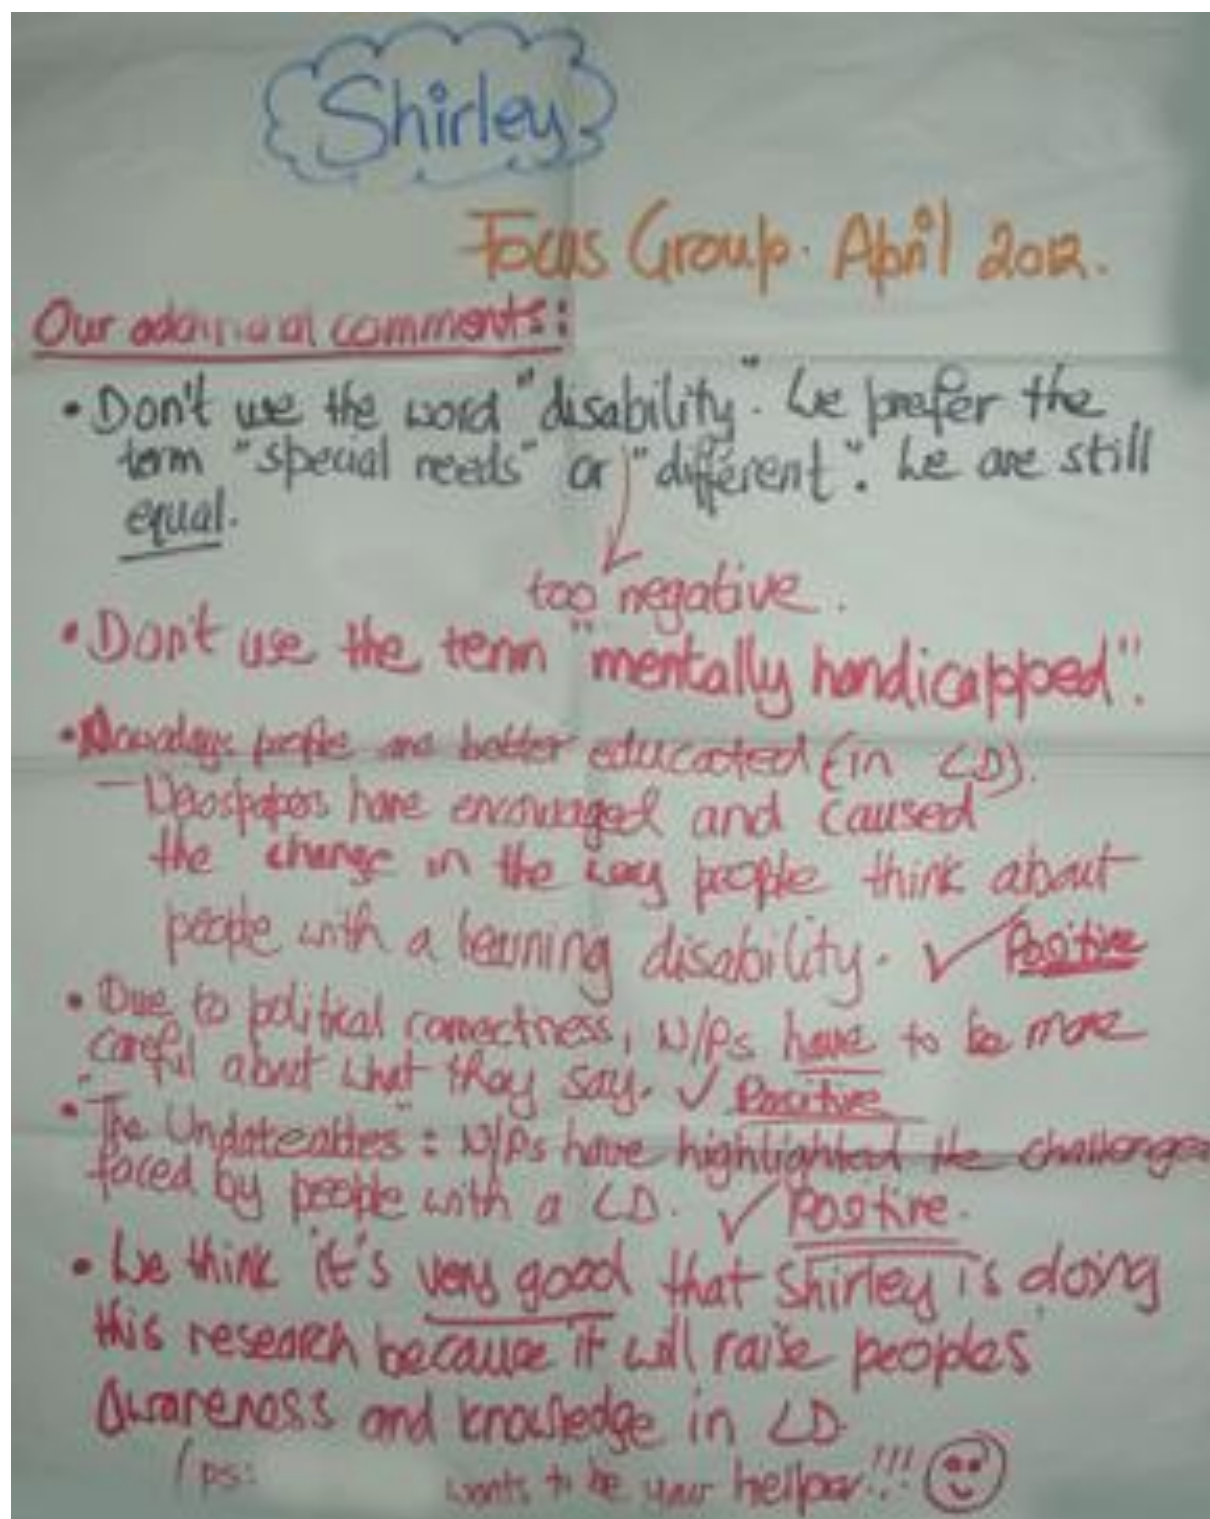 Shirley
Focus Group. April 2012.
Our additional comments:
• Don't use the word "disability". We prefer the
term "special needs" or "different". We are still
equal.
too negative.
• Don't use the term "mentally handicapped".
• Nowadays people are better educated (in LD).
– Newspapers have encouraged and caused
the change in the way people think about
people with a learning disability. ✓ Positive
• Due to political correctness, N/Ps have to be more
careful about what they say. ✓ Positive
• "The Undateables": N/Ps have highlighted the challenges
faced by people with a LD. ✓ Positive.
• We think it's very good that Shirley is doing
this research because it will raise peoples
awareness and knowledge in LD.
(ps: wants to be your helper!!!